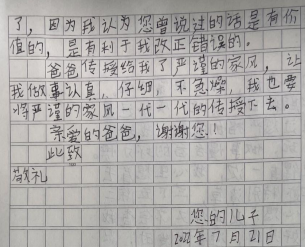 了，因为我认为您曾说过的话是有价
值的，是有利于我改正错误的。
爸爸传授给我了严谨的家风，让
我做事认真，仔细，不急躁，我也要
将严谨的家风一代一代的传授下去。
亲爱的爸爸，谢谢您！
此致
敬礼
您的儿子
2022年7月21日